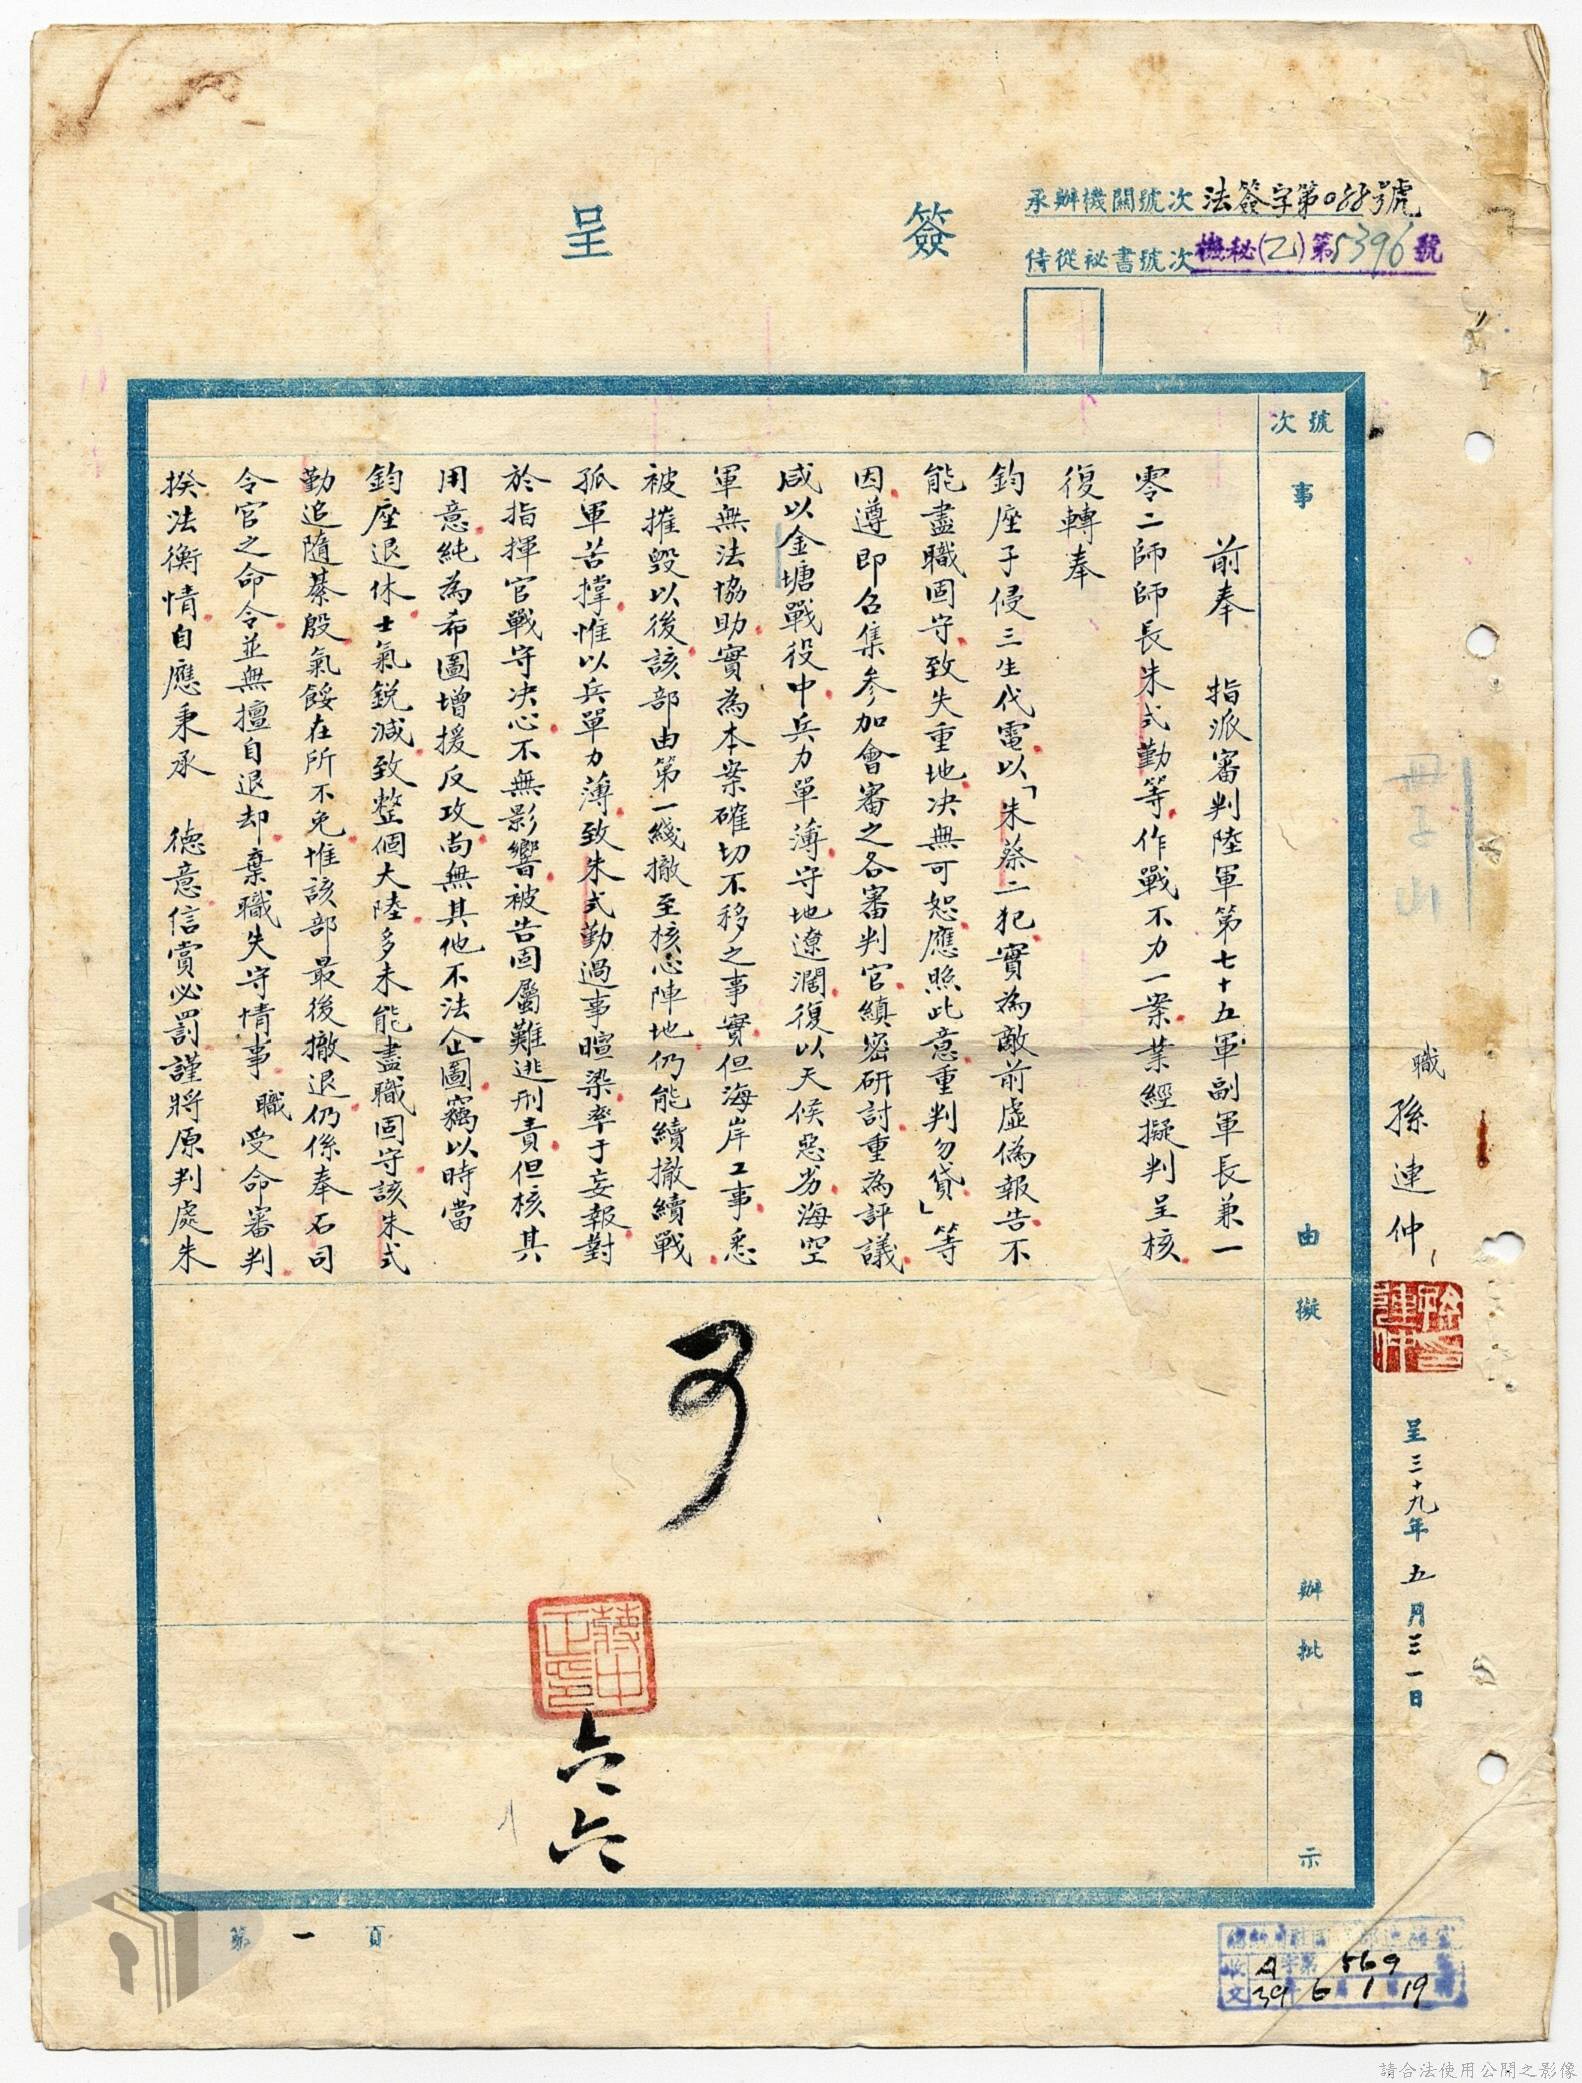 簽呈
承辦機關號次 法簽字第088號
侍從祕書號次 機秘(乙)第5396號
號次
事由
擬辦
批示
前奉 指派審判陸軍第七十五軍副軍長兼一
零二師師長朱式勤等作戰不力一案業經擬判呈核
復轉奉
鈞座子侵三生代電以「朱蔡二犯實為敵前虛偽報告不
能盡職固守致失重地決無可恕應照此意重判勿貸」等
因遵即召集參加會審之各審判官縝密研討重為評議
咸以金塘戰役中兵力單薄守地遼濶復以天候惡劣海空
軍無法協助實為本案確切不移之事實但海岸工事悉
被摧毀以後該部由第一綫撤至核心陣地仍能續撤續戰
孤軍苦撐惟以兵單力薄致朱式勤遇事暄染率于妄報對
於指揮官戰守決心不無影響被告固屬難逃刑責但核其
用意純為希圖增援反攻尚無其他不法企圖竊以時當
鈞座退休士氣銳減致整個大陸多未能盡職固守該朱式
勤追隨綦殷氣餒在所不免惟該部最後撤退仍係奉石司
令官之命令並無擅自退却棄職失守情事職受命審判
揆法衡情自應秉承 德意信賞必罰謹將原判處朱
可
蔣中正印
六六
職孫連仲
孫連仲印
呈三十九年五月三一日
第一頁
收文
A字第569號
39年6月1日19時
請合法使用公開之影像